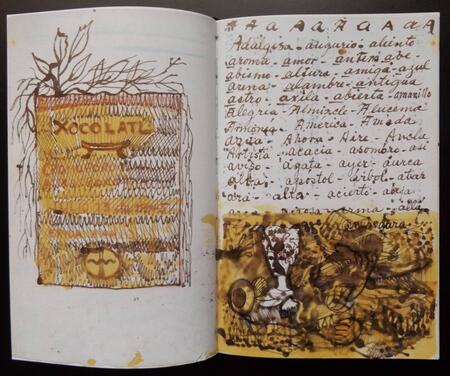 XOCOLATL
A A A A A A A A A
Adalgisa - augurio - aliento
aroma - amor - antena - ave -
abismo - altura - amiga - azul
arena - alambre - antigua
astro - axila - abierta - amarillo
Alegria - Almizcle - Alucema
Armonia - América - Amada
agua - Ahora - Aire - Ancla
Artista - acacia - asombro - así
aviso - ágata - ayer - áurea
alba - apostol - árbol - atar
ara - alta - acierto - abeja
arma - allá